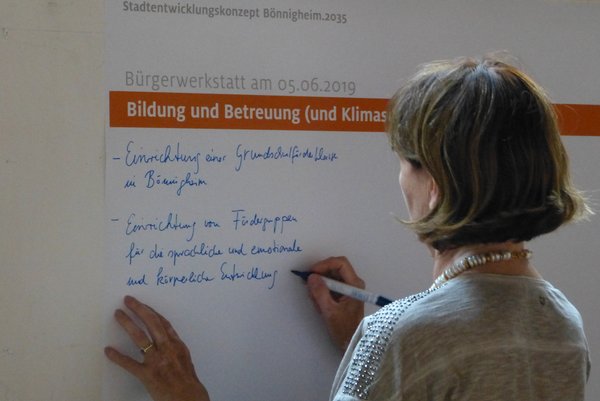 Stadtentwicklungskonzept Bönnigheim.2035
Bürgerwerkstatt am 05.06.2019
Bildung und Betreuung (und Klimas
- Einrichtung einer Grundschulförderklasse
in Bönnigheim
- Einrichtung von Fördergruppen
für die sprachliche und emotionale
und körperliche Entwicklung